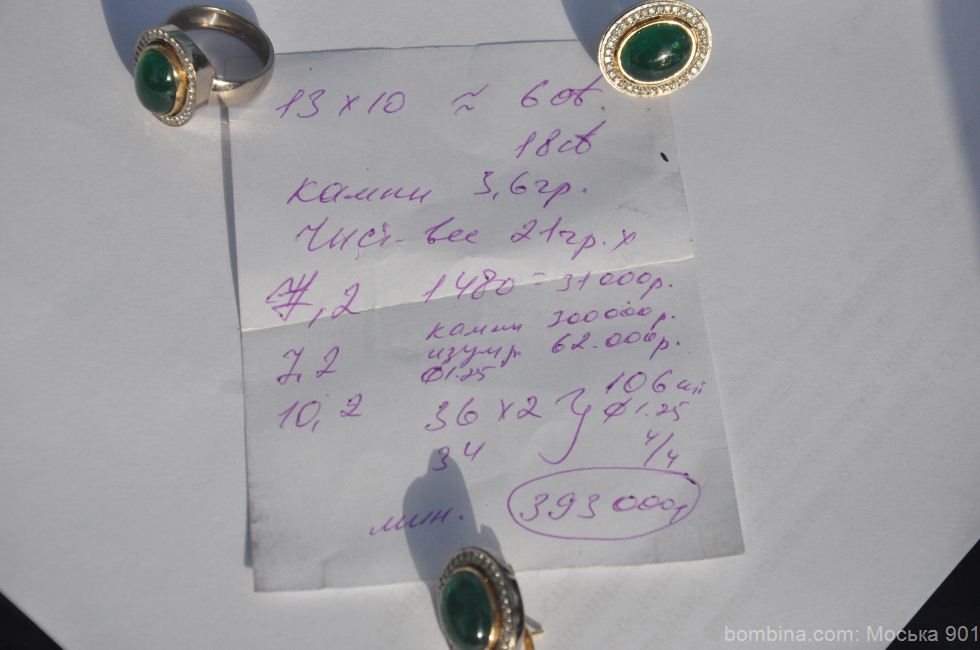 13 x 10 ≈ 6 ct.
18 ct
камни 3,6 гр.
Чист. вес 21 гр. x
7,2 1480 = 31 000 р.
камни 300 000 р.
7,2 изумр. 62.000 р.
Ø1.25
10,2 36 x 2 } 106 шт
Ø 1.25
34 4/4
мин. 393 000 р
bombina.com: Моська 901